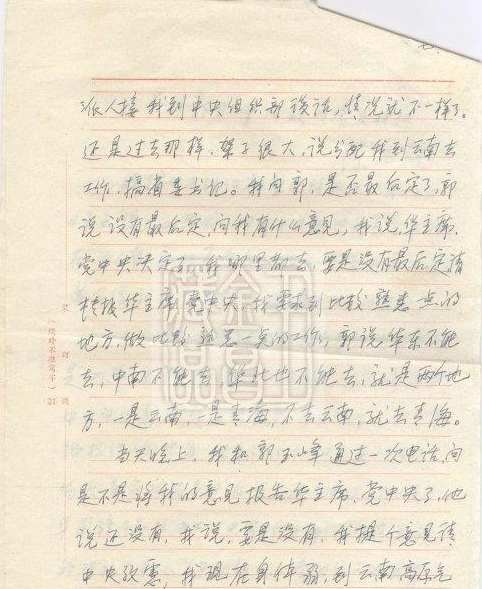 七
派人接我到中央组织部谈话，情况就不一样了。
还是过去那样，架子很大，说分配我到云南去
工作，搞省委书记。我问郭，是否最后定了，郭
说，没有最后定，问我有什么意见，我说，华主席、
党中央决定了，我哪里都去，要是没有最后定请
转报华主席党中央，我要求到比较熟悉一点的
地方，做比较熟悉一点的工作。郭说华东不能
去，中南不能去，华北也不能去，就是两个地
方，一是云南，一是青海，不去云南，就去青海。
当天晚上，我和郭玉峰通过一次电话，问
是不是将我的意见报告华主席、党中央了，他
说还没有，我说，要是没有，我提个意见请
中央考虑，我现在身体弱，到云南高原气
装订线